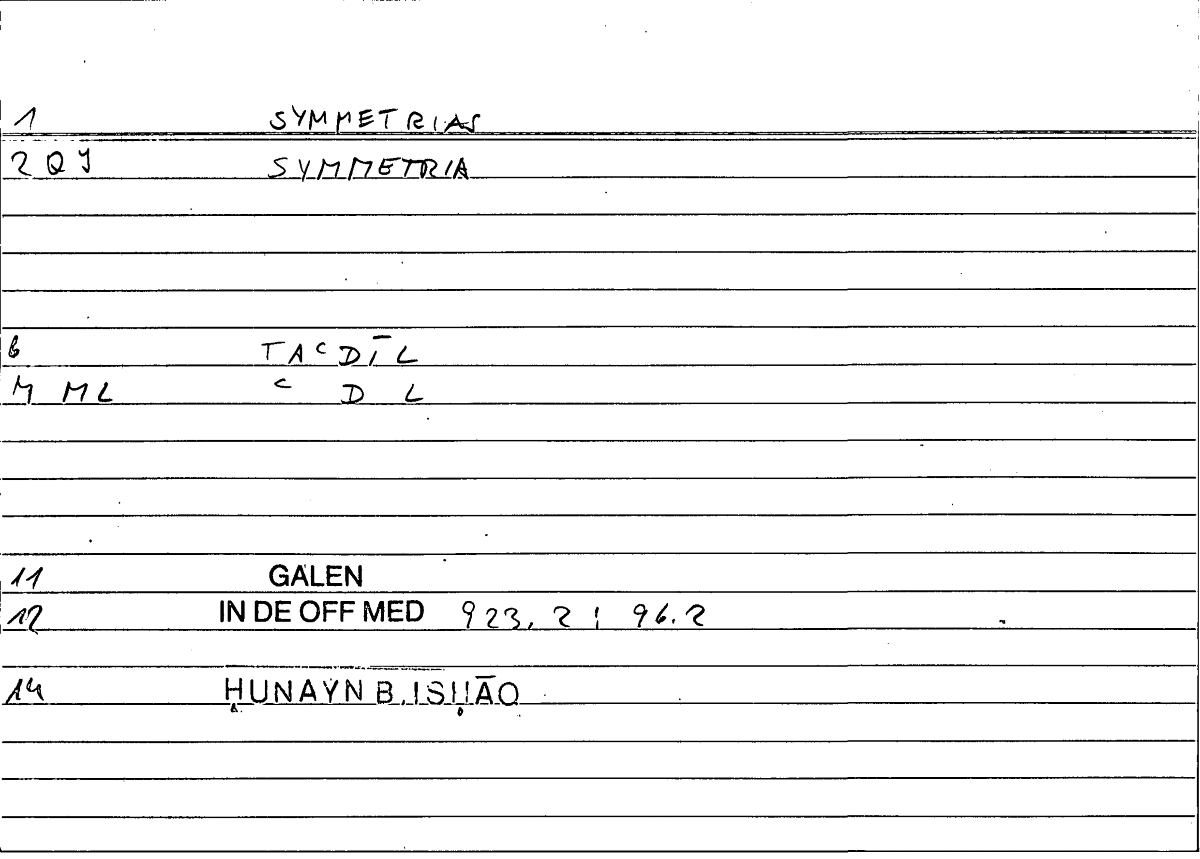 1 SYMMETRIAS
2 Q J SYMMETRIA
6 TAᶜDĪL
M ML ᶜ D L
11 GALEN
12 IN DE OFF MED 923, 2 ; 96.2
14 ḤUNAYN B. ISḤĀQ